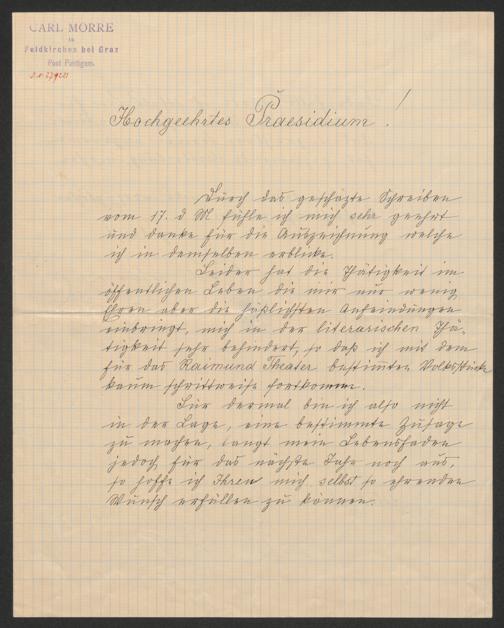 CARL MORRE
in
Feldkirchen bei Graz
Post Puntigam.
Hochgeehrtes Praesidium!
Durch das geschäzte Schreiben
vom 17. d M fühle ich mich sehr geehrt
und danke für die Auszeichnung welche
ich in demselben erblicke.
Leider hat die Thätigkeit im
öffentlichen Leben die mir nur wenig
Ehren aber die häßlichsten Anfeindungen
einbringt, mich in der literarischen Thä-
tigkeit sehr behindert, so daß ich mit dem
für das Raimund Theater bestimmten Volksstücke
kaum schrittweise fortkomme.
Für dermal bin ich also nicht
in der Lage, eine bestimmte Zusage
zu machen, langt mein Lebensfaden
jedoch für das nächste Jahr noch aus,
so hoffe ich Ihren mich selbst so ehrenden
Wunsch erfüllen zu können.